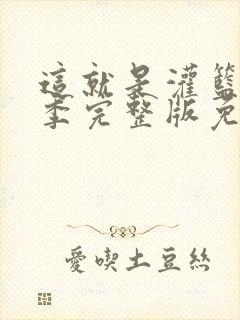 這就是灌籃
季完整版免
愛喫土豆絲